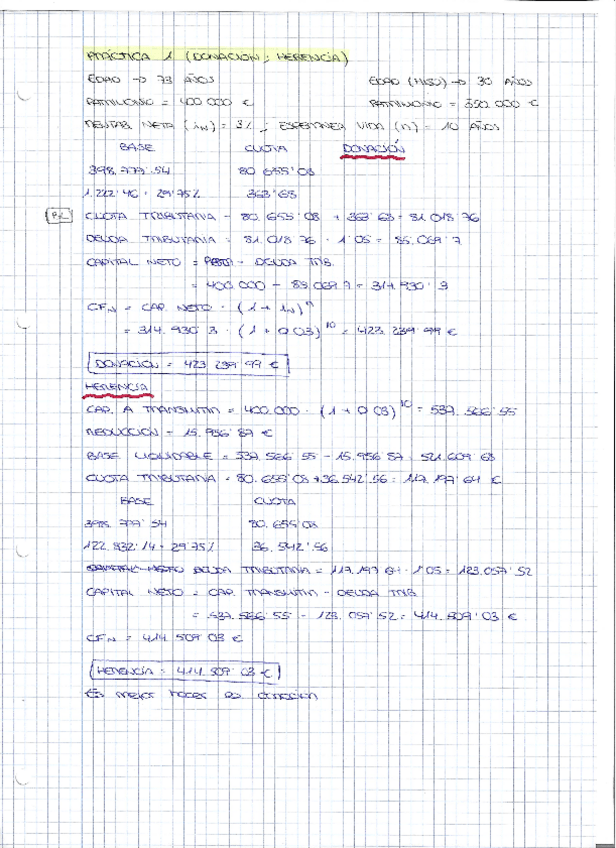 PRÁCTICA 1 (DONACIÓN; HERENCIA)
EDAD → 73 AÑOS EDAD (HIJO) → 30 AÑOS
PATRIMONIO = 400 000 € PATRIMONIO = 350 000 €
RENTAB. NETA (in) = 3%; ESPERANZA VIDA (n) = 10 AÑOS
BASE CUOTA DONACIÓN
398.777'54 80 655'08
1.222'46 · 29'75% 363'68
CUOTA TRIBUTARIA = 80.655'08 + 363'68 = 81.018'76
DEUDA TRIBUTARIA = 81.018'76 · 1'05 = 85.069'7
CAPITAL NETO = - DEUDA TRIB.
= 400.000 - 85.069'7 = 314.930'3
CFN = CAP. NETO · (1 + in)^n
= 314.930'3 · (1 + 0'03)^10 = 423.239'99 €
DONACION = 423 239'99 €
HERENCIA
CAP. A TRANSMITIR = 400.000 · (1 + 0'03)^10 = 537.566'55
REDUCCIÓN = 15.956'87 €
BASE LIQUIDABLE = 537.566'55 - 15.956'87 = 521.609'68
CUOTA TRIBUTARIA = 80.655'08 + 36.542'56 = 117.197'64 €
BASE CUOTA
398.777'54 80.655'08
122.832'14 · 29'75% 36.542'56
DEUDA TRIBUTARIA = 117.197'64 · 1'05 = 123.057'52
CAPITAL NETO = CAP. TRANSMITIR - DEUDA TRIB
= 537.566'55 - 123.057'52 = 414.509'03 €
CFN = 414.509'03 €
HERENCIA = 414.509'03 €
Es mejor hacer la donacion